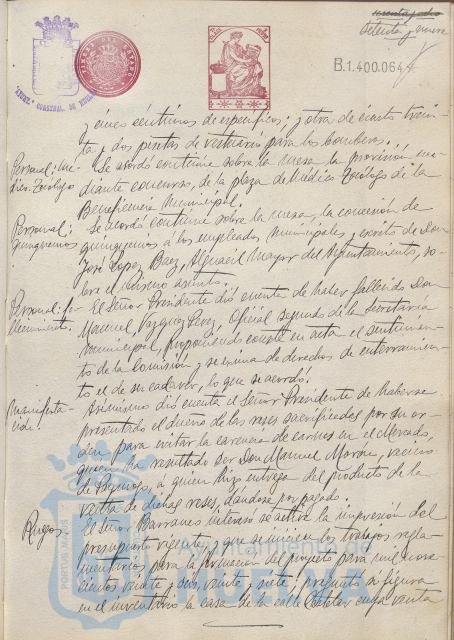 setenta y ocho
setenta y nueve
B.1.400.064
AYUNT. CONSTNAL. DE HUELVA
TIMBRE DEL ESTADO
y cinco céntimos de específicos; y otra de ciento trein-
ta y dos pesetas de vestuario para los bomberos.
Personal: Mé-
dico Tocólogo
Se acordó continúe sobre la mesa la provisión me-
diante concurso, de la plaza de Médico Tocólogo de la
Beneficencia Municipal.
Personal:
Quinquenios
Se acordó continúe sobre la mesa, la concesión de
quinquenios a los empleados municipales, y escrito de Don
José López Baez, Alguacil Mayor del Ayuntamiento, so-
bre el mismo asunto.
Personal: fa-
llecimiento.
El Señor Presidente dió cuenta de haber fallecido Don
Manuel Vazquez Perez, Oficial segundo de la Secretaría
municipal, proponiendo conste en acta el sentimien-
to de la Comisión y se exima de derechos de enterramien-
to el de su cadáver, lo que se acordó.
Manifesta-
ción.
Asimismo dió cuenta el Señor Presidente de haberse
presentado el dueño de las reses sacrificadas por su or-
den para evitar la carencia de carnes en el Mercado,
quien ha resultado ser Don Manuel Moron, vecino
de Paymogo, a quien hizo entrega del producto de la
venta de dichas reses, dándose por pagado.
Ruegos
El Señor Barranco interesó se active la impresión del
presupuesto vigente, y que se inicien los trabajos regla-
mentarios para la formación del proyecto para mil nove-
cientos veinte y seis, veinte y siete; preguntó si figura
en el inventario la casa de la calle cuya venta
Ayuntamiento de
HUELVA